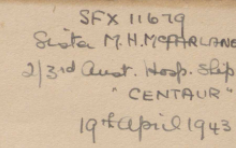 SFX 11679
Sister M.H. McFARLANE
2/3rd Aust. Hosp. Ship
"CENTAUR"
19th April 1943